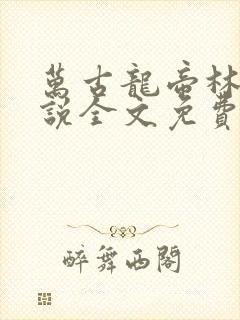 萬古龍帝林
說全文免費
醉舞西閣